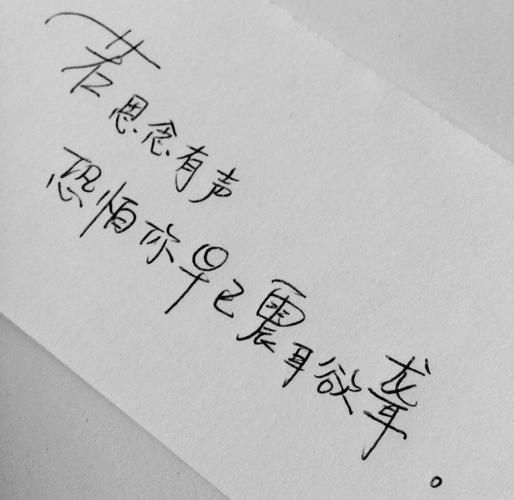 若思念有声
恐怕你早已震耳欲聋。